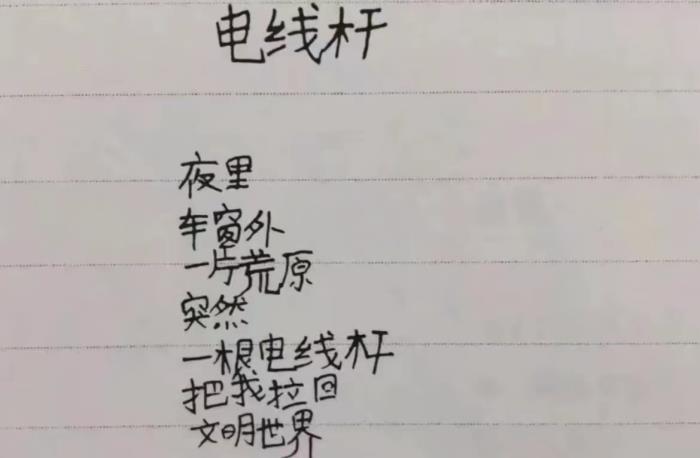 电线杆
夜里
车窗外
一片荒原
突然
一根电线杆
把我拉回
文明世界